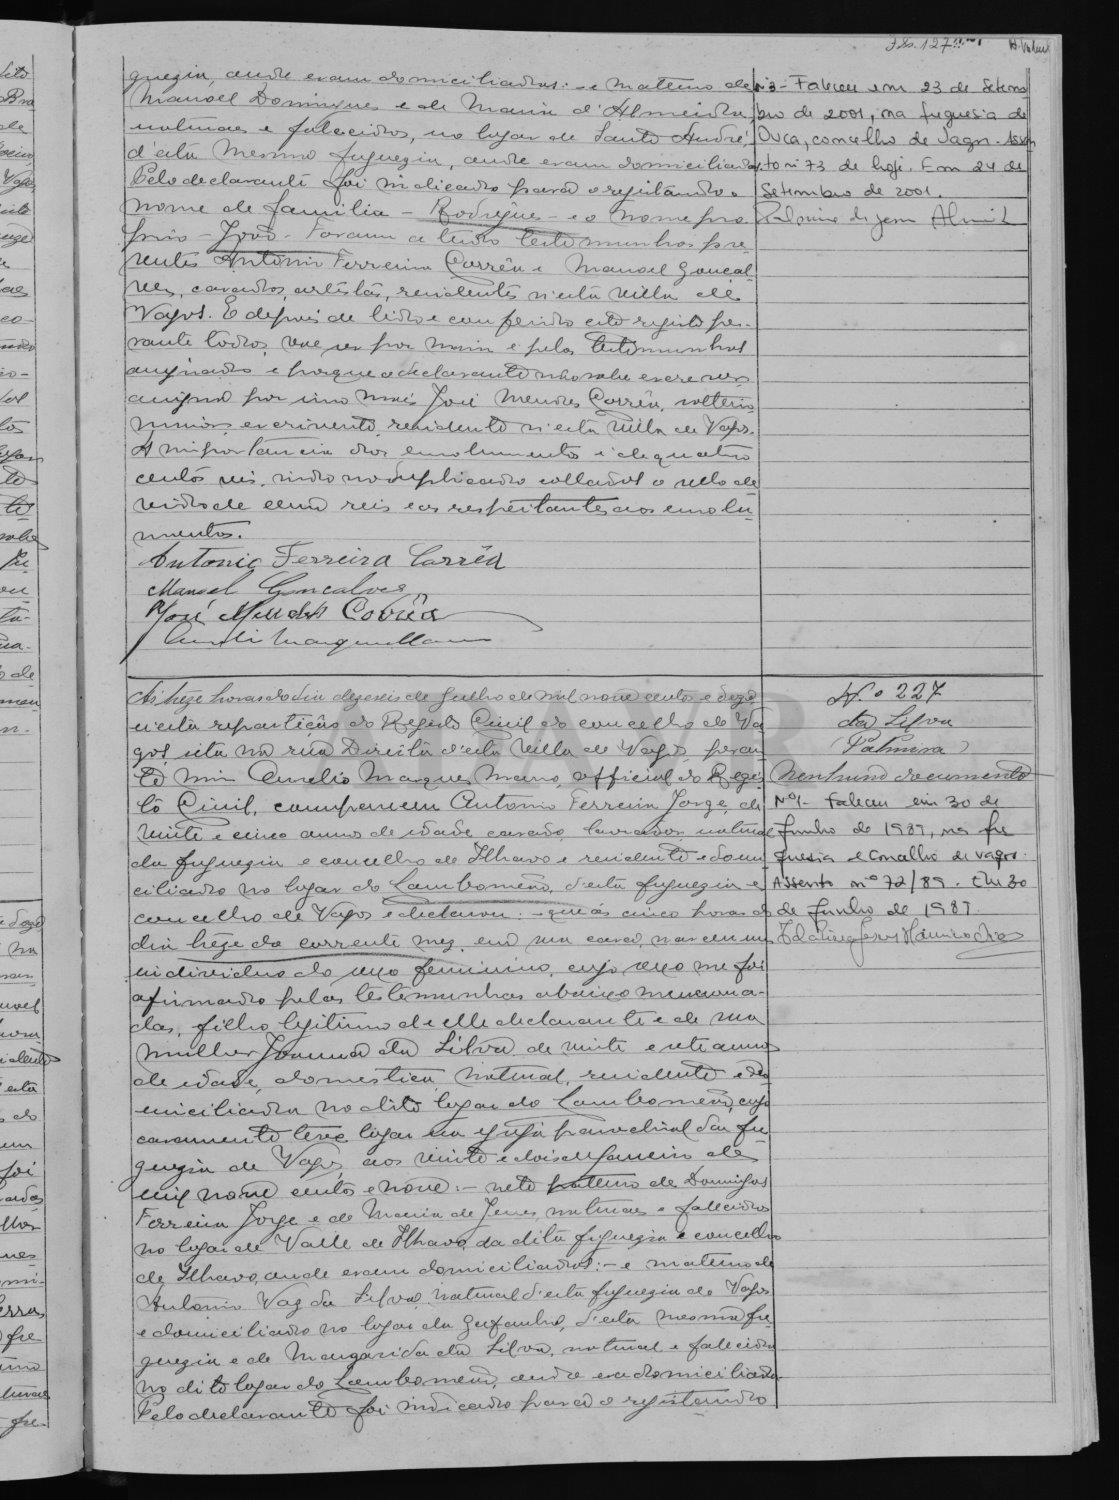 Fls. 127
guezia, onde eram domiciliados: - e materno de
Manoel Domingues e de Maria d'Almeida,
naturaes e falecidos, no lugar de Santo André,
d'esta mesma freguezia, onde eram domiciliados.
Pelo declarante foi indicado para o registando o
nome de familia - Rodrigues - e o nome pro
prio - João. Foram a tudo testemunhas pre
sentes Antonio Ferreira Corrêa e Manoel Gonçal
ves, casados, artistas, residentes n'esta villa de
Vagos. E depois de lido e conferido este registo pe-
rante todos, vae ser por mim e pelas testemunhas
assignado e porque o declarante não sabe escrever
assigna por uma mais José Mendes Corrêa, solteiro
escrivente, residente n'esta Villa de Vagos.
A importancia dos emolumentos é de quatro
centos reis, sendo no duplicado collados o sello de
verdade de cem reis e os respeitantes aos emolu-
mentos.
Antonio Ferreira Corrêa
Manoel Gonçalves
José Mendes Corrêa
Aurelio Marques Mano
nº 3 - Faleceu em 23 de Setem
bro de 2001, na freguesia de
Ouca, concelho de Vagos. Assen
to nº 73 de hoje. Em 24 de
Setembro de 2001.
Ás treze horas do dia dezeseis de Julho de mil nove centos e doze
n'esta repartição do Registo Civil do concelho de Va
gos, sita na rua Direita d'esta Villa de Vagos, peran
te mim Aurelio Marques Mano, official do Regis
to Civil, compareceu Antonio Ferreira Jorge, de
vinte e cinco annos de idade, casado, lavrador, natural
da freguezia e concelho de Ilhavo e residente e domi
ciliado no lugar do Lombomeão, d'esta freguezia e
concelho de Vagos e declarou: - que ás cinco horas do
dia treze do corrente mez, em sua casa, nasceu um
individuo do sexo feminino, cujo sexo me foi
afirmado pelas testemunhas abaixo menciona-
das, filho legitimo de elle declarante e de sua
mulher Joanna da Silva, de vinte e sete annos
de idade, domestica, natural, residente e do
miciliada no dito lugar do Lombomeão, cujo
casamento teve lugar na egreja parochial da fre
guezia de Vagos, aos vinte e dois de Janeiro de
mil nove centos e nove: - neto paterno de Domingos
Ferreira Jorge e de Maria de Jesus, naturaes e falecidos
no lugar de Valle de Ilhavo, da dita freguezia e concelho
de Ilhavo, onde eram domiciliados: - e materno de
Antonio Vaz da Silva, natural d'esta freguezia de Vagos
e domiciliado no lugar da Gafanha, d'esta mesma fre
guezia e de Margarida da Silva, natural e falecida
no dito lugar do Lombomeão, onde era domiciliada.
Pelo declarante foi indicado para o registando
Nº 227
da Silva
(Palmira)
Nenhum documento
Nº 1 - Faleceu em 30 de
Junho de 1989, na fre
guesia e concelho de Vagos.
Assento nº 72/89. Em 30
de Junho de 1989.